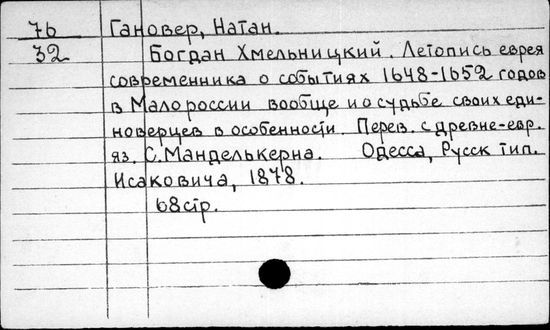 76 Гановер, Натан.
32 Богдан Хмельницкий. Летопись еврея
современника о событиях 1648-1652 годов
в Малороссии вообще и о судьбе своих еди-
новерцев в особенности. Перев. с древне-евр.
яз. С. Манделькерна. Одесса, Русск тип.
Исаковича, 1878.
68 стр.